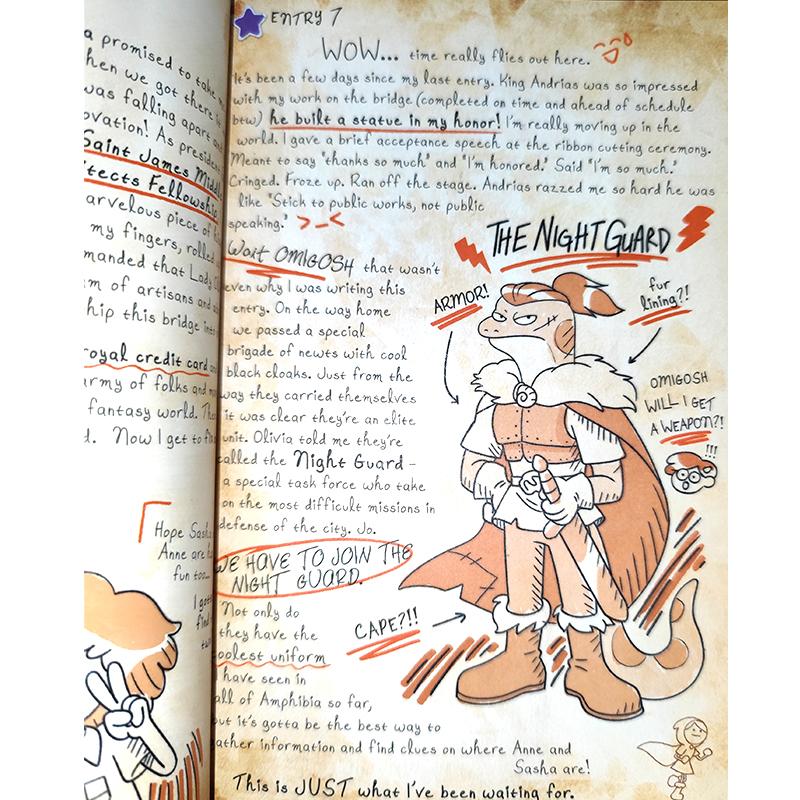 a promised to take
hen we got there
was falling apart and
ovation! As president
Saint James Middle
itects Fellowship
arvelous piece of
my fingers, rolled
manded that Lady
m of artisans and
hip this bridge into
royal credit card and
army of folks and
fantasy world.
d. Now I get to
Hope Sasha
Anne are
fun too...
I
ENTRY 7
WOW... time really flies out here.
It's been a few days since my last entry. King Andrias was so impressed
with my work on the bridge (completed on time and ahead of schedule
btw) he built a statue in my honor! I'm really moving up in the
world. I gave a brief acceptance speech at the ribbon cutting ceremony.
Meant to say "thanks so much" and "I'm honored." Said "I'm so much."
Cringed. Froze up. Ran off the stage. Andrias razzed me so hard he was
like "Stick to public works, not public
speaking." >_<
Wait OMIGOSH that wasn't
even why I was writing this
entry. On the way home
we passed a special
brigade of newts with cool
black cloaks. Just from the
way they carried themselves
it was clear they're an elite
unit. Olivia told me they're
called the Night Guard -
a special task force who take
on the most difficult missions in
defense of the city. Jo.
WE HAVE TO JOIN THE
NIGHT GUARD.
Not only do
they have the
coolest uniform
I have seen in
all of Amphibia so far,
but it's gotta be the best way to
gather information and find clues on where Anne and
Sasha are!
This is JUST what I've been waiting for.
THE NIGHT GUARD
ARMOR!
fur
lining?!
OMIGOSH
WILL I GET
A WEAPON?!
!!!
CAPE?!!